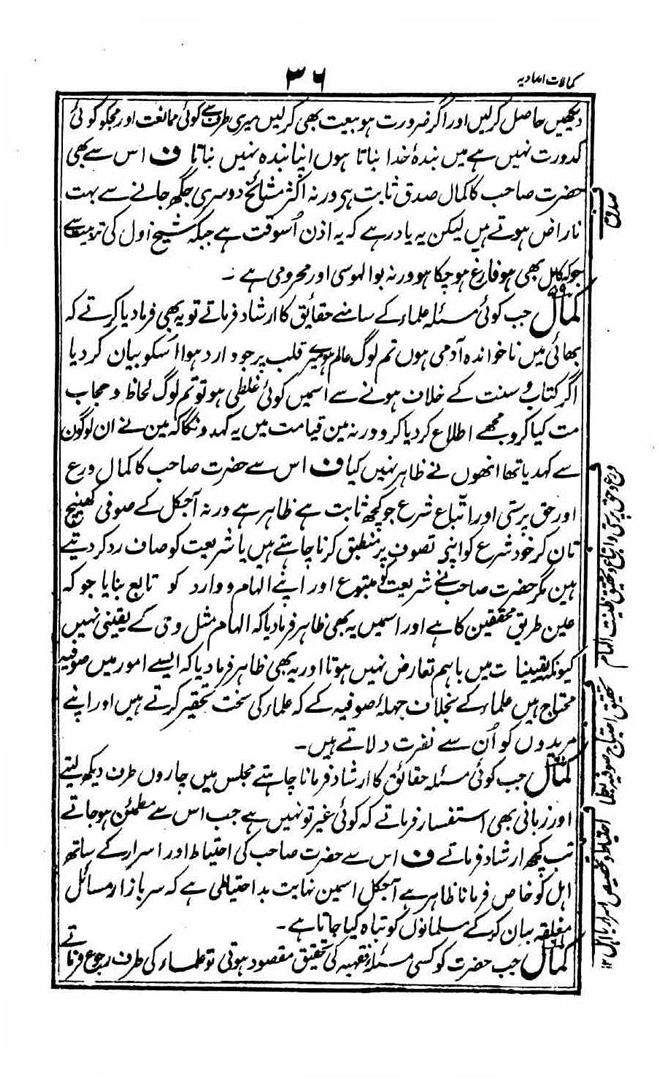 کمالات امدادیہ
۳۶
دیکھیں حاصل کرلیں اور اگر ضرورت ہو بیعت بھی کرلیں میری طرف سے کوئی ممانعت اور مجکو کوئی
کدورت نہیں ہے میں بندۂ خدا بناتا ہوں اپنا بندہ نہیں بناتا ف اس سے بھی
حضرت صاحب کا کمال صدق ثابت ہی ورنہ اکثر مشائخ دوسری جگھ جانے سے بہت
ناراض ہوتے ہیں لیکن یہ یاد رہے کہ یہ اذن اسوقت ہے جبکہ شیخ اول کی تربیت سے
جو کچھ بھی ہو فارغ ہوچکا ہو ورنہ بوالہوسی اور محرومی ہے ۔
کمال ۵۹ جب کوئی مسئلہ علماء کے سامنے حقائق کا ارشاد فرماتے تو یہ بھی فرمادیا کرتے کہ
بھائی میں ناخواندہ آدمی ہوں تم لوگ عالم ہو میرے قلب پر جو وارد ہوا اسکو بیان کردیا
اگر کتاب و سنت کے خلاف ہونے سے اسمیں کوئی غلطی ہو تو تم لوگ لحاظ و حجاب
مت کیا کرو مجھے اطلاع کردیا کرو ورنہ مین قیامت میں یہ کہدونگا کہ مین نے ان لوگون
سے کہدیا تھا انھوں نے ظاہر نہیں کیا ف اس سے حضرت صاحب کا کمال ورع
اور حق پرستی اور اتباع شرع جو کچھ ثابت ہے ظاہر ہے ورنہ آجکل کے صوفی کھینچ
تان کر خود شرع کو اپنی تصوف پر منطبق کرنا چاہتے ہیں یا شریعت کو صاف رد کردیتے
ہین مگر حضرت صاحب نے شریعت کو متبوع اور اپنے الہام و وارد کو تابع بنایا جو کہ
عین طریق محققین کا ہے اور اسمیں یہ بھی ظاہر فرمادیا کہ الہام مثل وحی کے یقینی نہیں
کیونکہ یقینیات میں باہم تعارض نہیں ہوتا اور یہ بھی ظاہر فرمادیا کہ ایسے امور میں صوفیہ
محتاج ہیں علماء کے بخلاف جہلاء صوفیہ کے کہ علماء کی سخت تحقیر کرتے ہیں اور اپنے
مریدوں کو اُن سے نفرت دلاتے ہیں۔
کمال جب کوئی مسئلہ حقائق کا ارشاد فرمانا چاہتے مجلس میں چاروں طرف دیکھ لیتے
اور زبانی بھی استفسار فرماتے کہ کوئی غیر تو نہیں ہے جب اس سے مطمئن ہوجاتے
تب کچھ ارشاد فرماتے ف اس سے حضرت صاحب کی احتیاط اور اسرار کے ساتھ
اہل کو خاص فرمانا ظاہر ہے آجکل اسمین نہایت بد احتیاطی ہے کہ سربازار مسائل
مغلقہ بیان کرکے مسلمانوں کو تباہ کیا جاتا ہے۔
کمال جب حضرت کو کسی مسئلہ فقہیہ کی تحقیق مقصود ہوتی تو علماء کی طرف رجوع فرماتے
صدق
ورع و حق پرستی و اتباع و تحقیق ظنیت الہام
تحقیق احتیاج صوفیہ بعلماء
احتیاط و تخصیص اسرار با اہل ۱۲